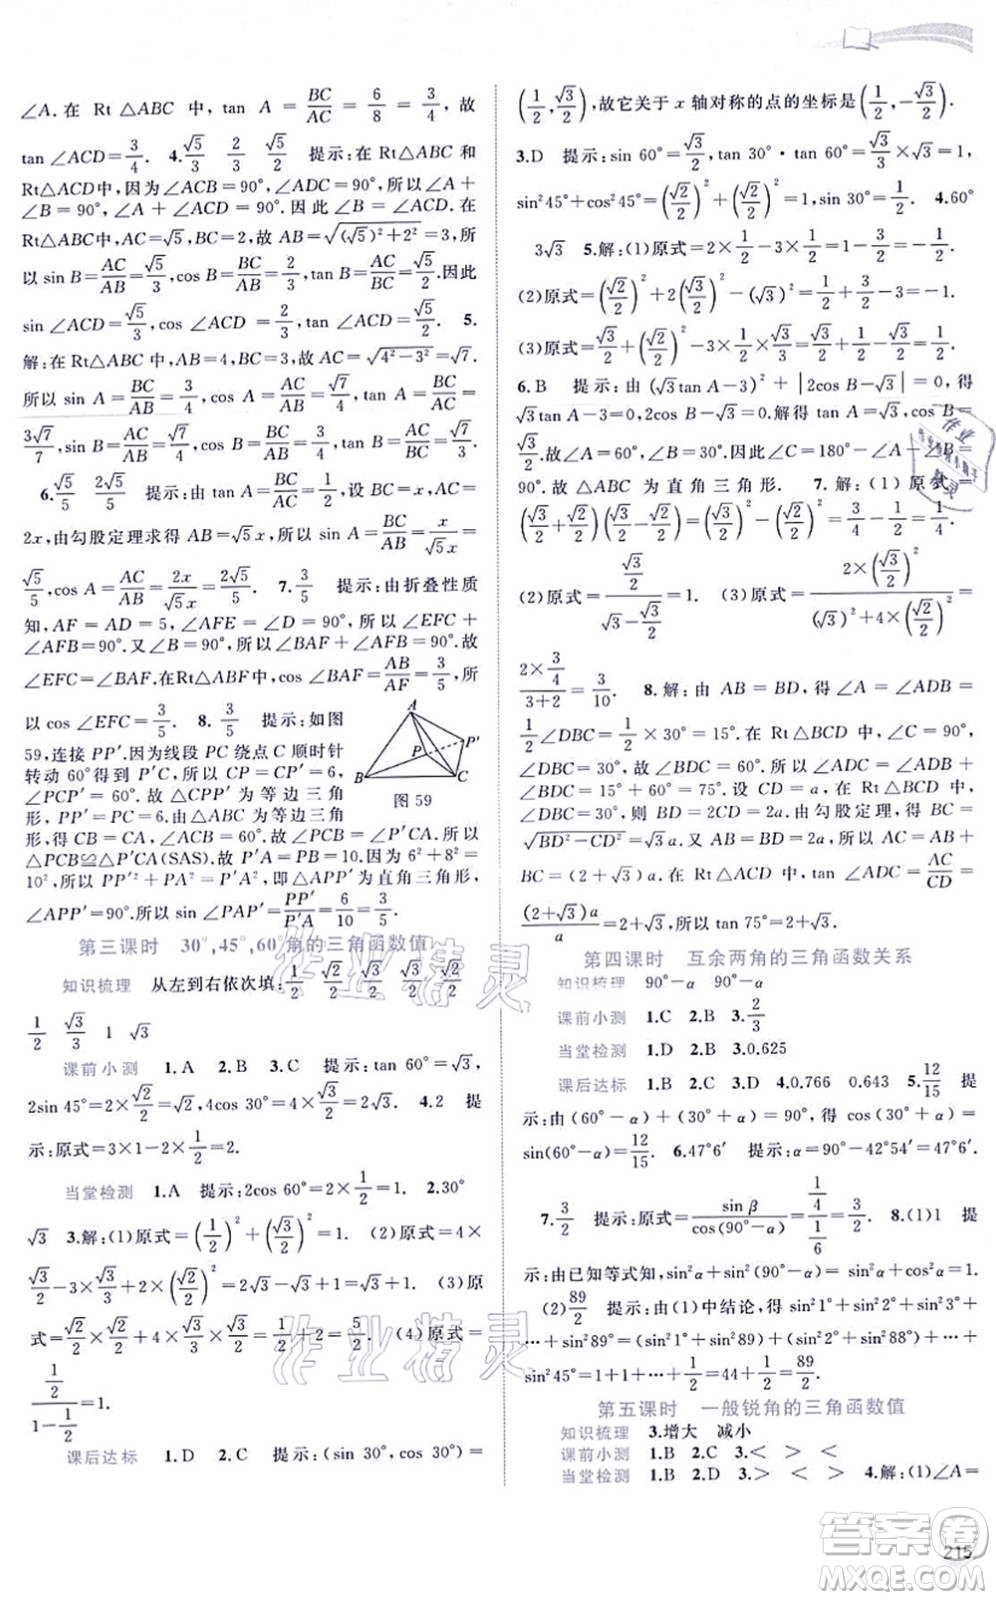 ∠A.在 Rt △ABC 中,tan A = BC/AC = 6/8 = 3/4,故
tan ∠ACD=3/4. 4.√5/3 2/3 √5/2 提示:在 Rt△ABC 和
Rt△ACD中,因为∠ACB=90°,∠ADC=90°,所以∠A+
∠B = 90°,∠A+∠ACD = 90°.因此∠B=∠ACD.在
Rt△ABC中,AC=√5,BC=2,故AB=√((√5)²+2²)=3,所
以 sin B=AC/AB=√5/3,cos B=BC/AB=2/3,tan B=AC/BC=√5/2.因此
sin ∠ACD=√5/3,cos ∠ACD=2/3,tan ∠ACD=√5/2. 5.
解:在Rt△ABC中,AB=4,BC=3,故AC=√(4²-3²)=√7.
所以 sin A=BC/AB=3/4,cos A=AC/AB=√7/4,tan A=BC/AC=
3√7/7,sin B=AC/AB=√7/4,cos B=BC/AB=3/4,tan B=AC/BC=√7/3.
6.√5/5 2√5/5 提示:由 tan A=BC/AC=1/2,设 BC=x,AC=
2x,由勾股定理求得 AB=√5x,所以 sin A=BC/AB=x/√5x=
√5/5,cos A=AC/AB=2x/√5x=2√5/5. 7.3/5 提示:由折叠性质
知,AF = AD = 5,∠AFE = ∠D = 90°,所以∠EFC +
∠AFB=90°.又∠B=90°,所以∠BAF+∠AFB=90°,故
∠EFC=∠BAF.在Rt△ABF中,cos ∠BAF=AB/AF=3/5,所
以 cos ∠EFC=3/5. 8. 3/5 提示:如图
59,连接 PP′.因为线段 PC 绕点 C 顺时针
转动 60°得到 P′C,所以 CP = CP′=6,
∠PCP′ = 60°.故 △CPP′ 为等边三角
形,PP′=PC=6.由△ABC为等边三角
形,得 CB = CA,∠ACB = 60°.所以
△PCB≌△P′CA(SAS).故 P′A=PB=10.因为 6²+8²=
10²,所以 PP′²+PA²=P′A²,即△APP′为直角三角形,
∠APP′=90°.所以sin ∠PAP′=PP′/P′A=6/10=3/5.
A
P
P′
B
C
图 59
第三课时 30°,45°,60°角的三角函数值
知识梳理 从左到右依次填:1/2 √2/2 √3/2 √3/2 √2/2
1/2 √3/3 1 √3
课前小测 1.A 2.B 3.C 提示:tan 60°=√3,
2sin 45°=2×√2/2=√2,4cos 30°=4×√3/2=2√3. 4.2 提
示:原式=3×1-2×1/2=2.
当堂检测 1.A 提示:2cos 60°=2×1/2=1. 2.30°
√3 3.解:(1)原式=(1/2)²+(√3/2)²=1. (2)原式=4×
√3/2-3×√3/3+2×(√2/2)²=2√3-√3+1=√3+1. (3)原
式=√2/2×√2/2+√3×√3/2+1/2=1/2+3/2+1/2=5/2. (4)原式=
(1/2)/(1-1/2)=1.
课后达标 1.D 2.C 提示:(sin 30°,cos 30°)=
(1/2,√3/2),故它关于 x 轴对称的点的坐标是(1/2,-√3/2).
3.D 提示:sin 60°=√3/2,tan 30°·tan 60°=√3/3×√3=1,
sin²45°+cos²45°=(√2/2)²+(√2/2)²=1,sin 30°=1/2. 4.60°
3√3 5.解:(1)原式=2×1/2-1/2×1=1-1/2=1/2.
(2)原式=(√2/2)²+2(√3/2)²-(√3)²=1/2+3/2-3=-1.
(3)原式=√3/2+(√2/2)²-√3/2×√3/3=√3/2+1/2-1/2=√3/2.
6.B 提示:由(√3tan A-3)²+|2cos B-√3|=0,得
√3tan A-3=0,2cos B-√3=0.解得 tan A=√3,cos B=
√3/2.故∠A=60°,∠B=30°.因此∠C=180°-∠A-∠B=
90°.故 △ABC 为直角三角形. 7.解:(1)原式=
(√3/2+√2/2)(√3/2-√2/2)=(√3/2)²-(√2/2)²=3/4-1/2=1/4.
(2)原式=(√3/2)/(√3-√3/2)=1. (3)原式=(2×(√3/2)²)/((√3)²+4×(√2/2)²)=
(2×3/4)/(3+2)=3/10. 8.解:由 AB=BD,得∠A=∠ADB=
1/2∠DBC=1/2×30°=15°.在 Rt△BCD 中,∠C=90°,
∠DBC=15°+60°=30°,则 BD=2CD=2a.故 AB=
BD = 2CD = 2a. 由勾股定理得 BC =
√(BD²-CD²)=√3a.又因为CD=a,所以AC=AB+
BC=(2+√3)a.在 Rt△ACD 中,tan ∠ADC=AC/CD=
(2+√3)a/a=2+√3.所以tan 75°=2+√3.
第四课时 互余两角的三角函数关系
知识梳理 90°-α 90°-α
课前小测 1.C 2.B 3.2/3
当堂检测 1.D 2.B 3.0.625
课后达标 1.B 2.B 3.D 4.0.766 0.643 5.12/15 提
示:由(60°-α)+(30°+α)=90°,得 cos(30°+α)=
sin(60°-α)=12/15. 6.47°6′ 提示:α=90°-42°54′=47°6′.
7.3/2 提示:原式=sin β/cos(90°-α)=(1/4)/(1/6)=3/2. 8.(1)1 提
示:由已知等式知,sin²α+sin²(90°-α)=sin²α+cos²α=1.
(2)89/2 提示:由(1)中结论,得sin²1°+sin²2°+sin²3°+
…+sin²89°=(sin²1°+sin²89°)+(sin²2°+sin²88°)+…+
sin²45°=1+1+…+1/2=44+1/2=89/2.
第五课时 一般锐角的三角函数值
知识梳理 3.增大 减小
课前小测 1.B 2.C 3.> < >
当堂检测 1.B 2.D 3.> < > 4.解:(1)∠A=
215
作业精灵
作业精灵
答案圈
MXQE.COM